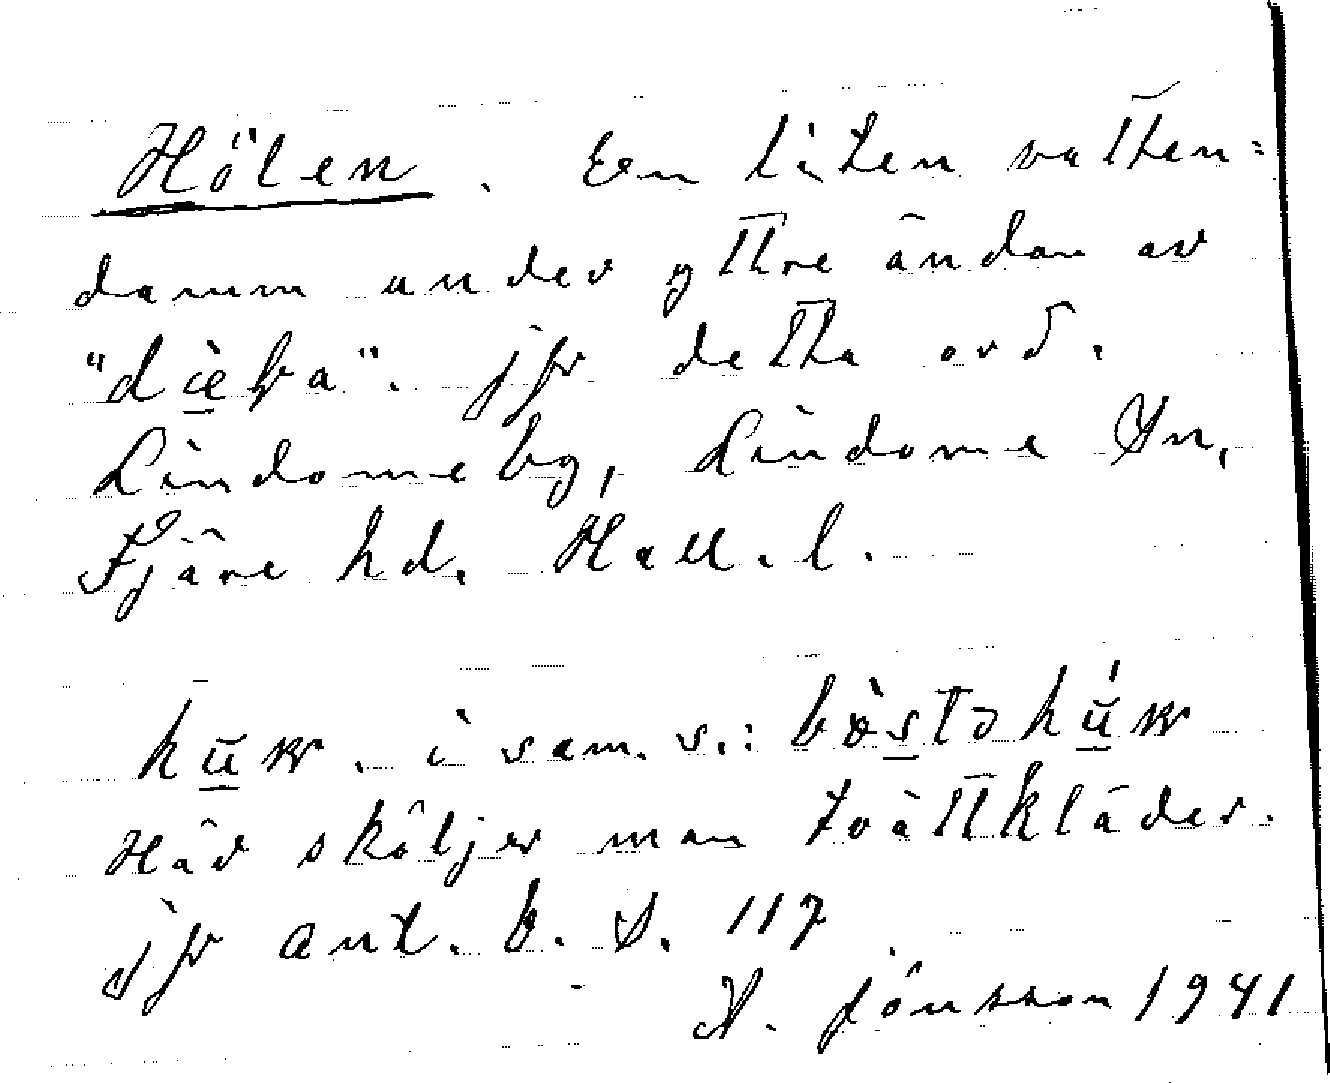 Hölen. En liten vatten=
damm under yttre ändan av
jfr detta ord.
Lindome by, Lindome sn,
Fjäre hd. Hall. l.
i sam. s.:
Här sköljer man tvättkläder.
jfr ant. b. s. 117
Jönsson 1941